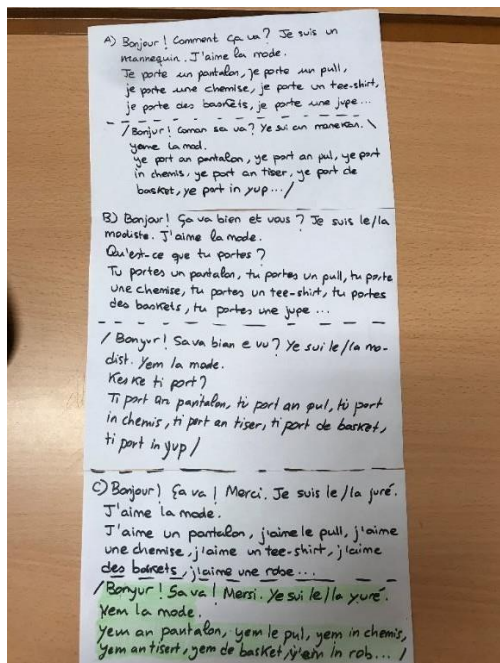 A) Bonjour! Comment ça va? Je suis un
mannequin. J'aime la mode.
Je porte un pantalon, je porte un pull,
je porte une chemise, je porte un tee-shirt,
je porte des baskets, je porte une jupe...
/Bonjur! Coman sa va? Ye sui an maneken.\
yeme la mod.
ye port an pantalon, ye port an pul, ye port
in chemis, ye port an tiser, ye port de
basket, ye port in yup.../
B) Bonjour! Ça va bien et vous? Je suis le/la
modiste. J'aime la mode.
Qu'est-ce que tu portes?
Tu portes un pantalon, tu portes un pull, tu porte
une chemise, tu portes un tee-shirt, tu portes
des baskets, tu portes une jupe...
/Bonyur! Sava bian e vu? Ye sui le/la mo-
dist. Yem la mode.
Kes ke ti port?
Ti port an pantalon, ti port an pul, ti port
in chemis, ti port an tiser, ti port de basket,
ti port in yup/
C) Bonjour! Ça va! Merci. Je suis le/la juré.
J'aime la mode.
J'aime un pantalon, j'aime le pull, j'aime
une chemise, j'aime un tee-shirt, j'aime
des baskets, j'aime une robe...
/Bonyur! Sava! Mersi. Ye sui le/la yuré.
Yem la mode.
Yem an pantalon, yem le pul, yem in chemis,
yem an tisert, yem de basket, yem in rob.../